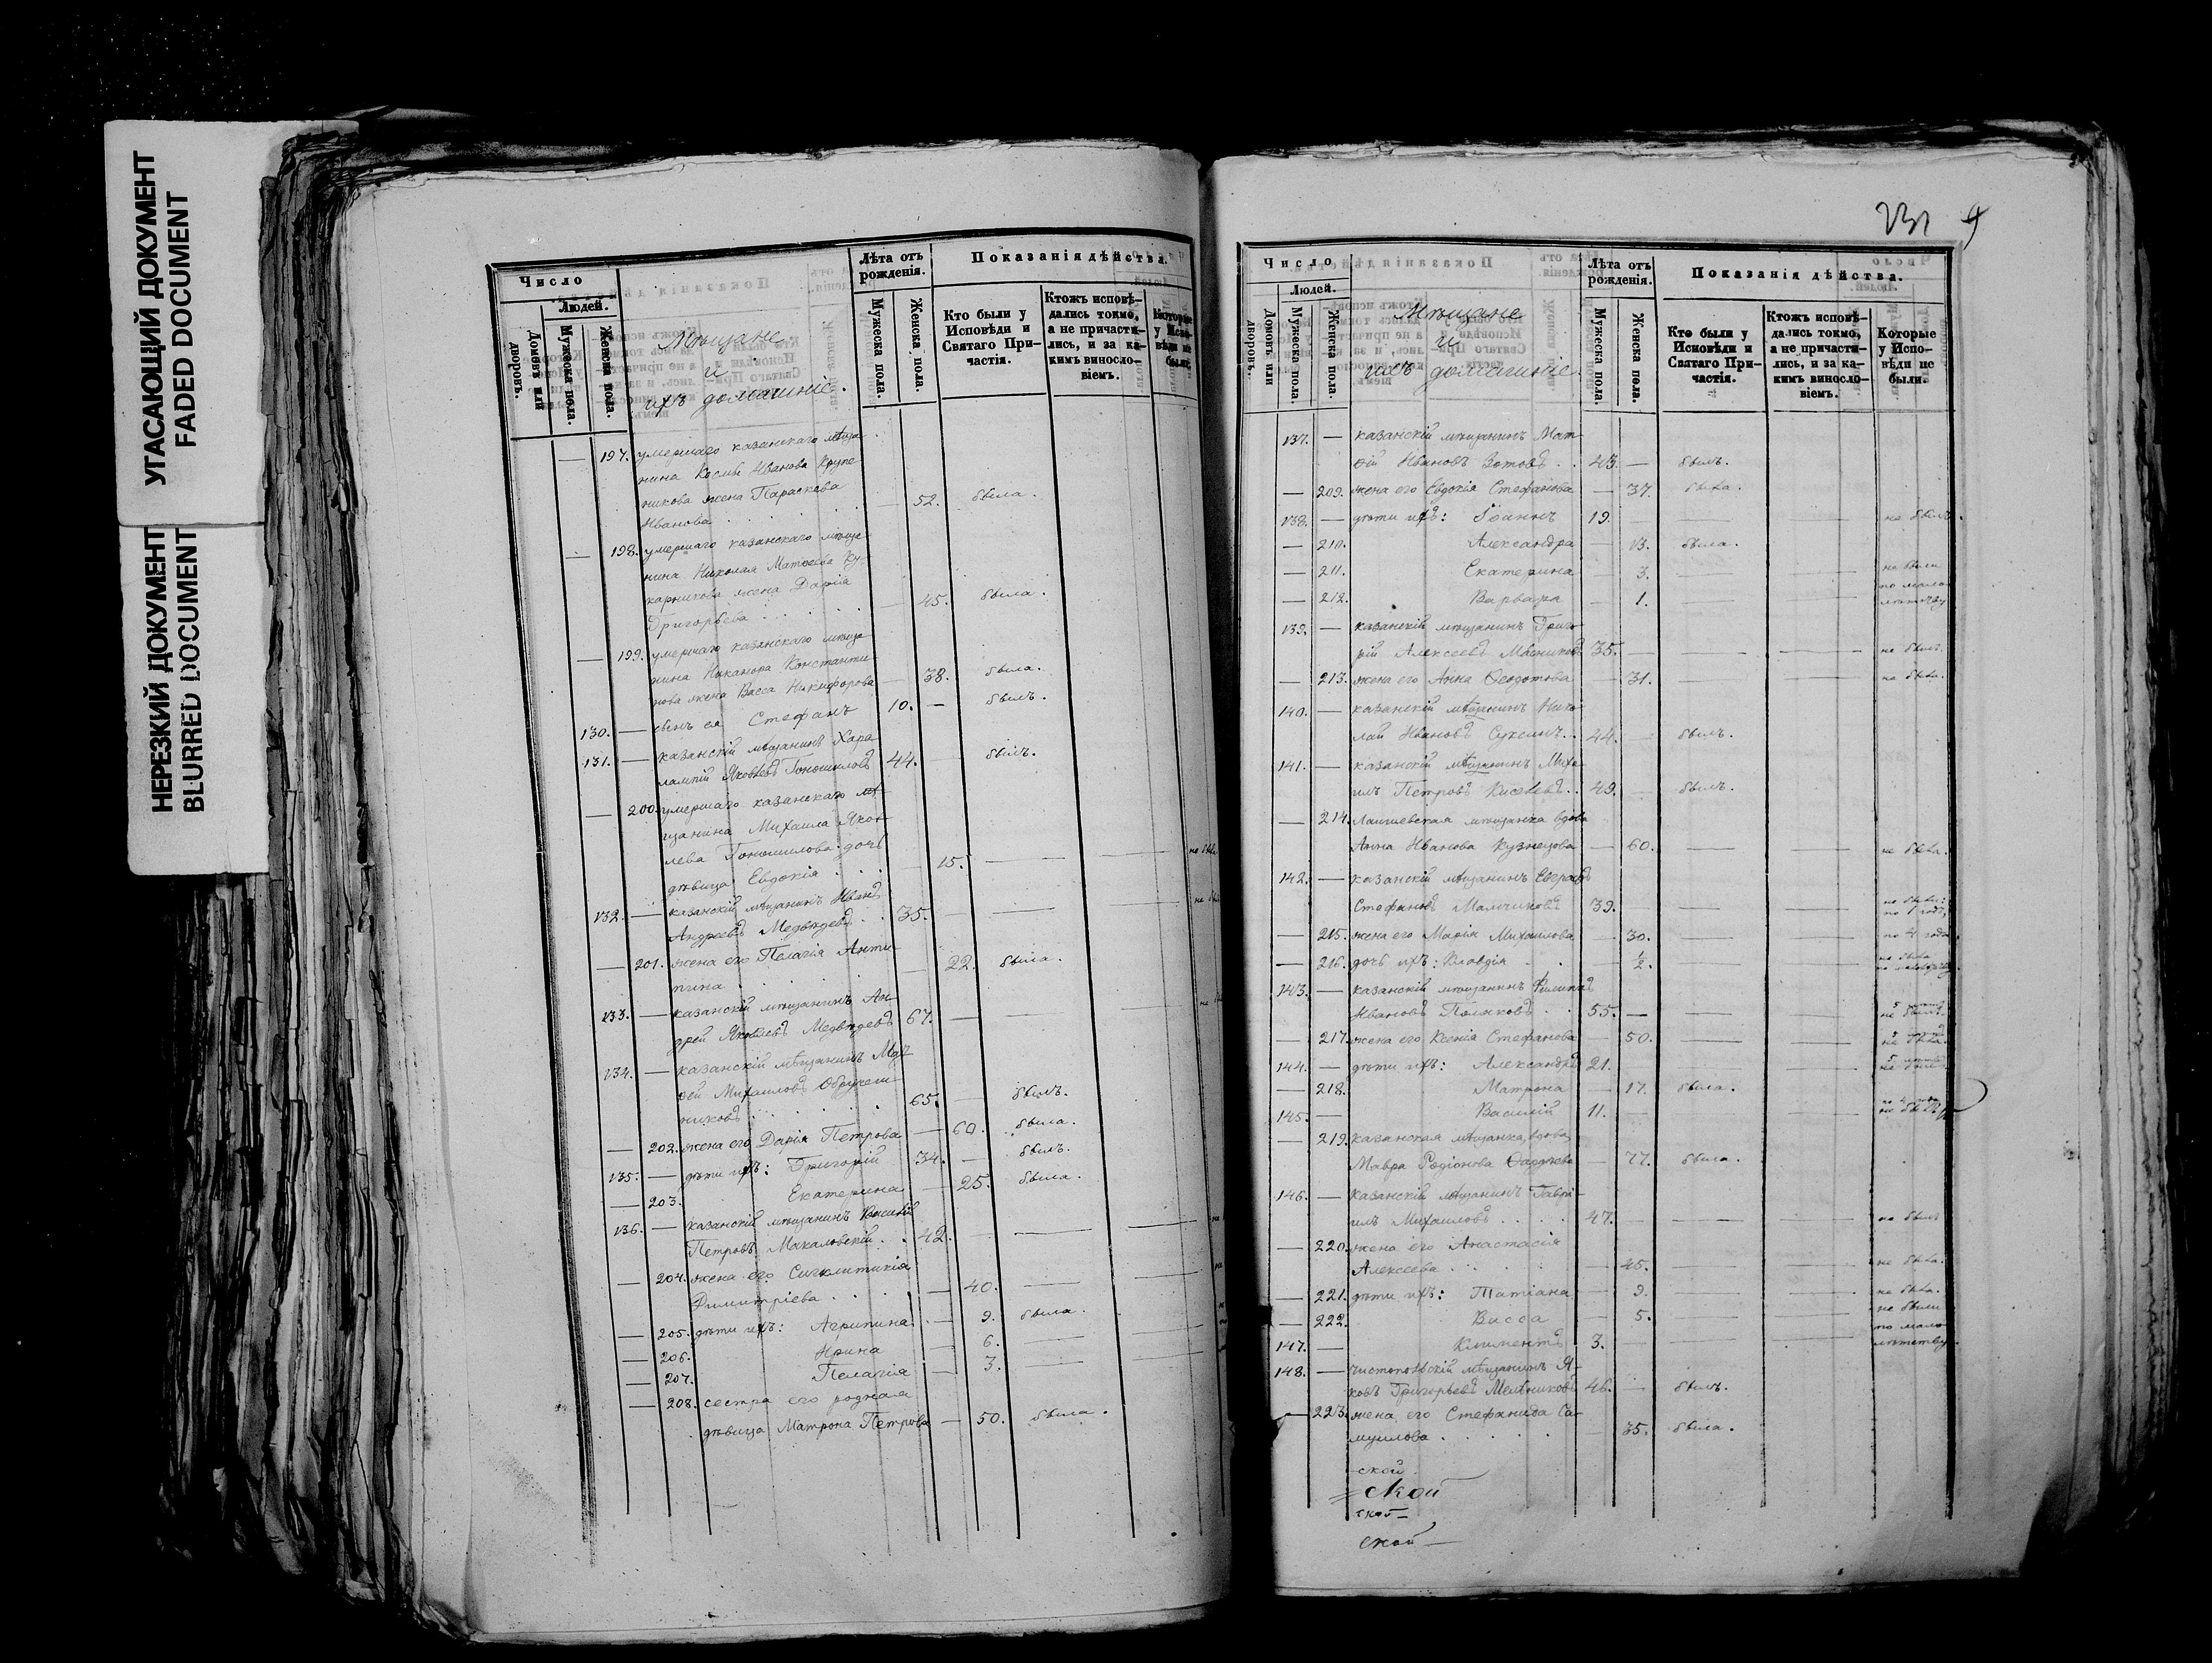 УГАСАЮЩИЙ ДОКУМЕНТ
FADED DOCUMENT
НЕРЕЗКИЙ ДОКУМЕНТ
BLURRED DOCUMENT
Число
Людей.
Домовъ или дворовъ.
Мужеска пола.
Женска пола.
Мѣщане
и
ихъ домашніе.
Лѣта отъ рожденія.
Мужеска пола.
Женска пола.
Показанія дѣйства.
Кто были у Исповѣди и Святаго Причастія.
Ктожъ исповѣдались токмо, а не причастились, и за какимъ винословіемъ.
Которые у Исповѣди не были.
— 197. умершаго казанскаго мѣща-
нина Космы Иванова Крупе-
никова жена Параскева
Иванова — 52. была.
— 198. умершаго казанскаго мѣща-
нина Николая Матѳеева Ку-
карникова жена Дарія
Григорьева — 45. была.
— 199. умершаго казанскаго мѣща-
нина Никанора Константи-
нова жена Васса Никифорова — 38. была.
130. — сынъ ея Стефанъ 10. — былъ.
131. — казанскій мѣщанинъ Хара-
лампій Яковлевъ Гоношиловъ 44. былъ.
— 200. умершаго казанскаго мѣ-
щанина Михаила Яков-
лева Гоношилова дочь
дѣвица Евдокія — 15. — не была
132. — казанскій мѣщанинъ Иванъ
Андреевъ Медвѣдевъ 35. — —
— 201. жена его Пелагія Анти-
пина — 22. была.
133. — казанскій мѣщанинъ Ан-
дрей Яковлевъ Медвѣдевъ 67. — —
134. — казанскій мѣщанинъ Мат-
ѳей Михаиловъ
65. — былъ.
— 202. жена его Дарія Петрова — 60. была.
135. — дѣти ихъ: Григорій 34. — былъ.
— 203. Екатерина — 25. была.
136. — казанскій мѣщанинъ Василій
Петровъ Макаловскій 42. — —
— 204. жена его Сигклитикія
Димитріева — 40. —
— 205. дѣти ихъ: Агрипина — 9. была.
— 206. Ирина — 6. —
— 207. Пелагія — 3. —
— 208. сестра его родная
дѣвица Матрона Петрова — 50. была.
Число
Людей.
Домовъ или дворовъ.
Мужеска пола.
Женска пола.
Мѣщане
и
ихъ домашніе.
Лѣта отъ рожденія.
Мужеска пола.
Женска пола.
Показанія дѣйства.
Кто были у Исповѣди и Святаго Причастія.
Ктожъ исповѣдались токмо, а не причастились, и за какимъ винословіемъ.
Которые у Исповѣди не были.
137. — казанскій мѣщанинъ Мат-
ѳій Ивановъ Зотовъ 43. — былъ.
— 209. жена его Евдокія Стефанова — 37. была.
138. — дѣти ихъ: Іоаннъ 19. — — не былъ.
— 210. Александра — 13. была.
— 211. Екатерина — 3. — — не были
по мало-
— 212. Варвара — 1. — — лѣтству
139. — казанскій мѣщанинъ Григо-
рій Алексеевъ Мясниковъ 35. — — — не былъ.
— 213. жена его Анна Ѳеодотова — 31. — — не была.
140. — казанскій мѣщанинъ Нико-
лай Ивановъ Суксинъ 44. — былъ.
141. — казанскій мѣщанинъ Миха-
илъ Петровъ Киселевъ 49. — былъ.
— 214. Лаишевская мѣщанка вдова
Анна Иванова Кузнецова — 60. — — не была.
142. — казанскій мѣщанинъ Евграфъ
Стефановъ 39. — — —
— 215. жена его Марія Михаилова — 30. — — по 4 года
— 216. дочь ихъ: Клавдія — ½. — — не была
143. — казанскій мѣщанинъ Филиппъ
Ивановъ Поляковъ 55. — — — не былъ
— 217. жена его Ксенія Стефанова — 50. — — не была.
144. — дѣти ихъ: Александръ 21. — — — не былъ.
— 218. Матрона — 17. была.
145. — Василій 11. — — не былъ
— 219. казанская мѣщанка, вдова
Мавра Родіонова — 77. была.
146. — казанскій мѣщанинъ Гаврі-
илъ Михаиловъ 47. — — — не былъ
— 220. жена его Анастасія
Алексеева — 45. — — не была.
— 221. дѣти ихъ: Татіана — 9. — — не была.
— 222. Васса — 5. — — не были
по мало-
147. — Климентъ 3. — — — лѣтству
148. — чистопольскій мѣщанинъ Я-
ковъ Григорьевъ Мельниковъ 46. — былъ.
— 223. жена его Стефанида Са-
муилова — 35. была.
ской
ской
ской
ской